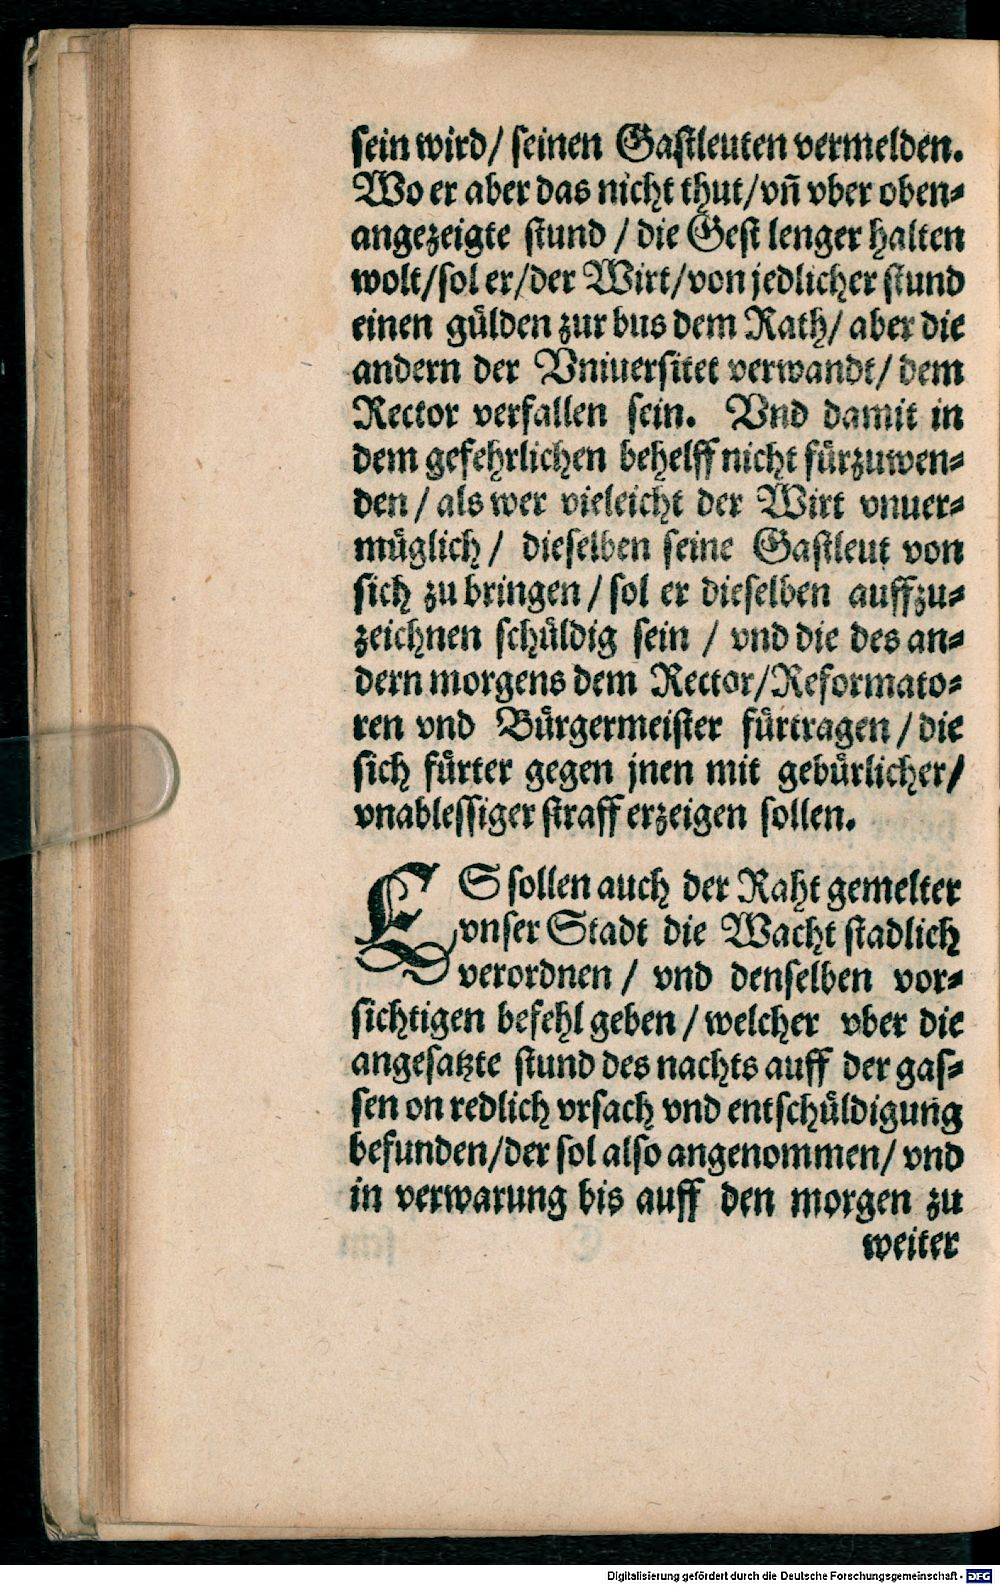 sein wird/ seinen Gastleuten vermelden.
Wo er aber das nicht thut/vn̄ vber oben-
angezeigte stund / die Gest lenger halten
wolt/sol er/der Wirt/von jedlicher stund
einen gülden zur bus dem Rath/ aber die
andern der Vniuersitet verwandt/ dem
Rector verfallen sein. Vnd damit in
dem gefehrlichen behelff nicht fürzuwen-
den / als wer vieleicht der Wirt vnuer-
müglich / dieselben seine Gastleut von
sich zu bringen / sol er dieselben auffzu-
zeichnen schüldig sein / vnd die des an-
dern morgens dem Rector/Reformato-
ren vnd Bürgermeister fürtragen / die
sich fürter gegen jnen mit gebürlicher/
vnablessiger straff erzeigen sollen.
ES sollen auch der Raht gemelter
vnser Stadt die Wacht stadlich
verordnen / vnd denselben vor-
sichtigen befehl geben / welcher vber die
angesatzte stund des nachts auff der gas-
sen on redlich vrsach vnd entschüldigung
befunden/der sol also angenommen/ vnd
in verwarung bis auff den morgen zu
weiter
Digitalisierung gefördert durch die Deutsche Forschungsgemeinschaft - DFG